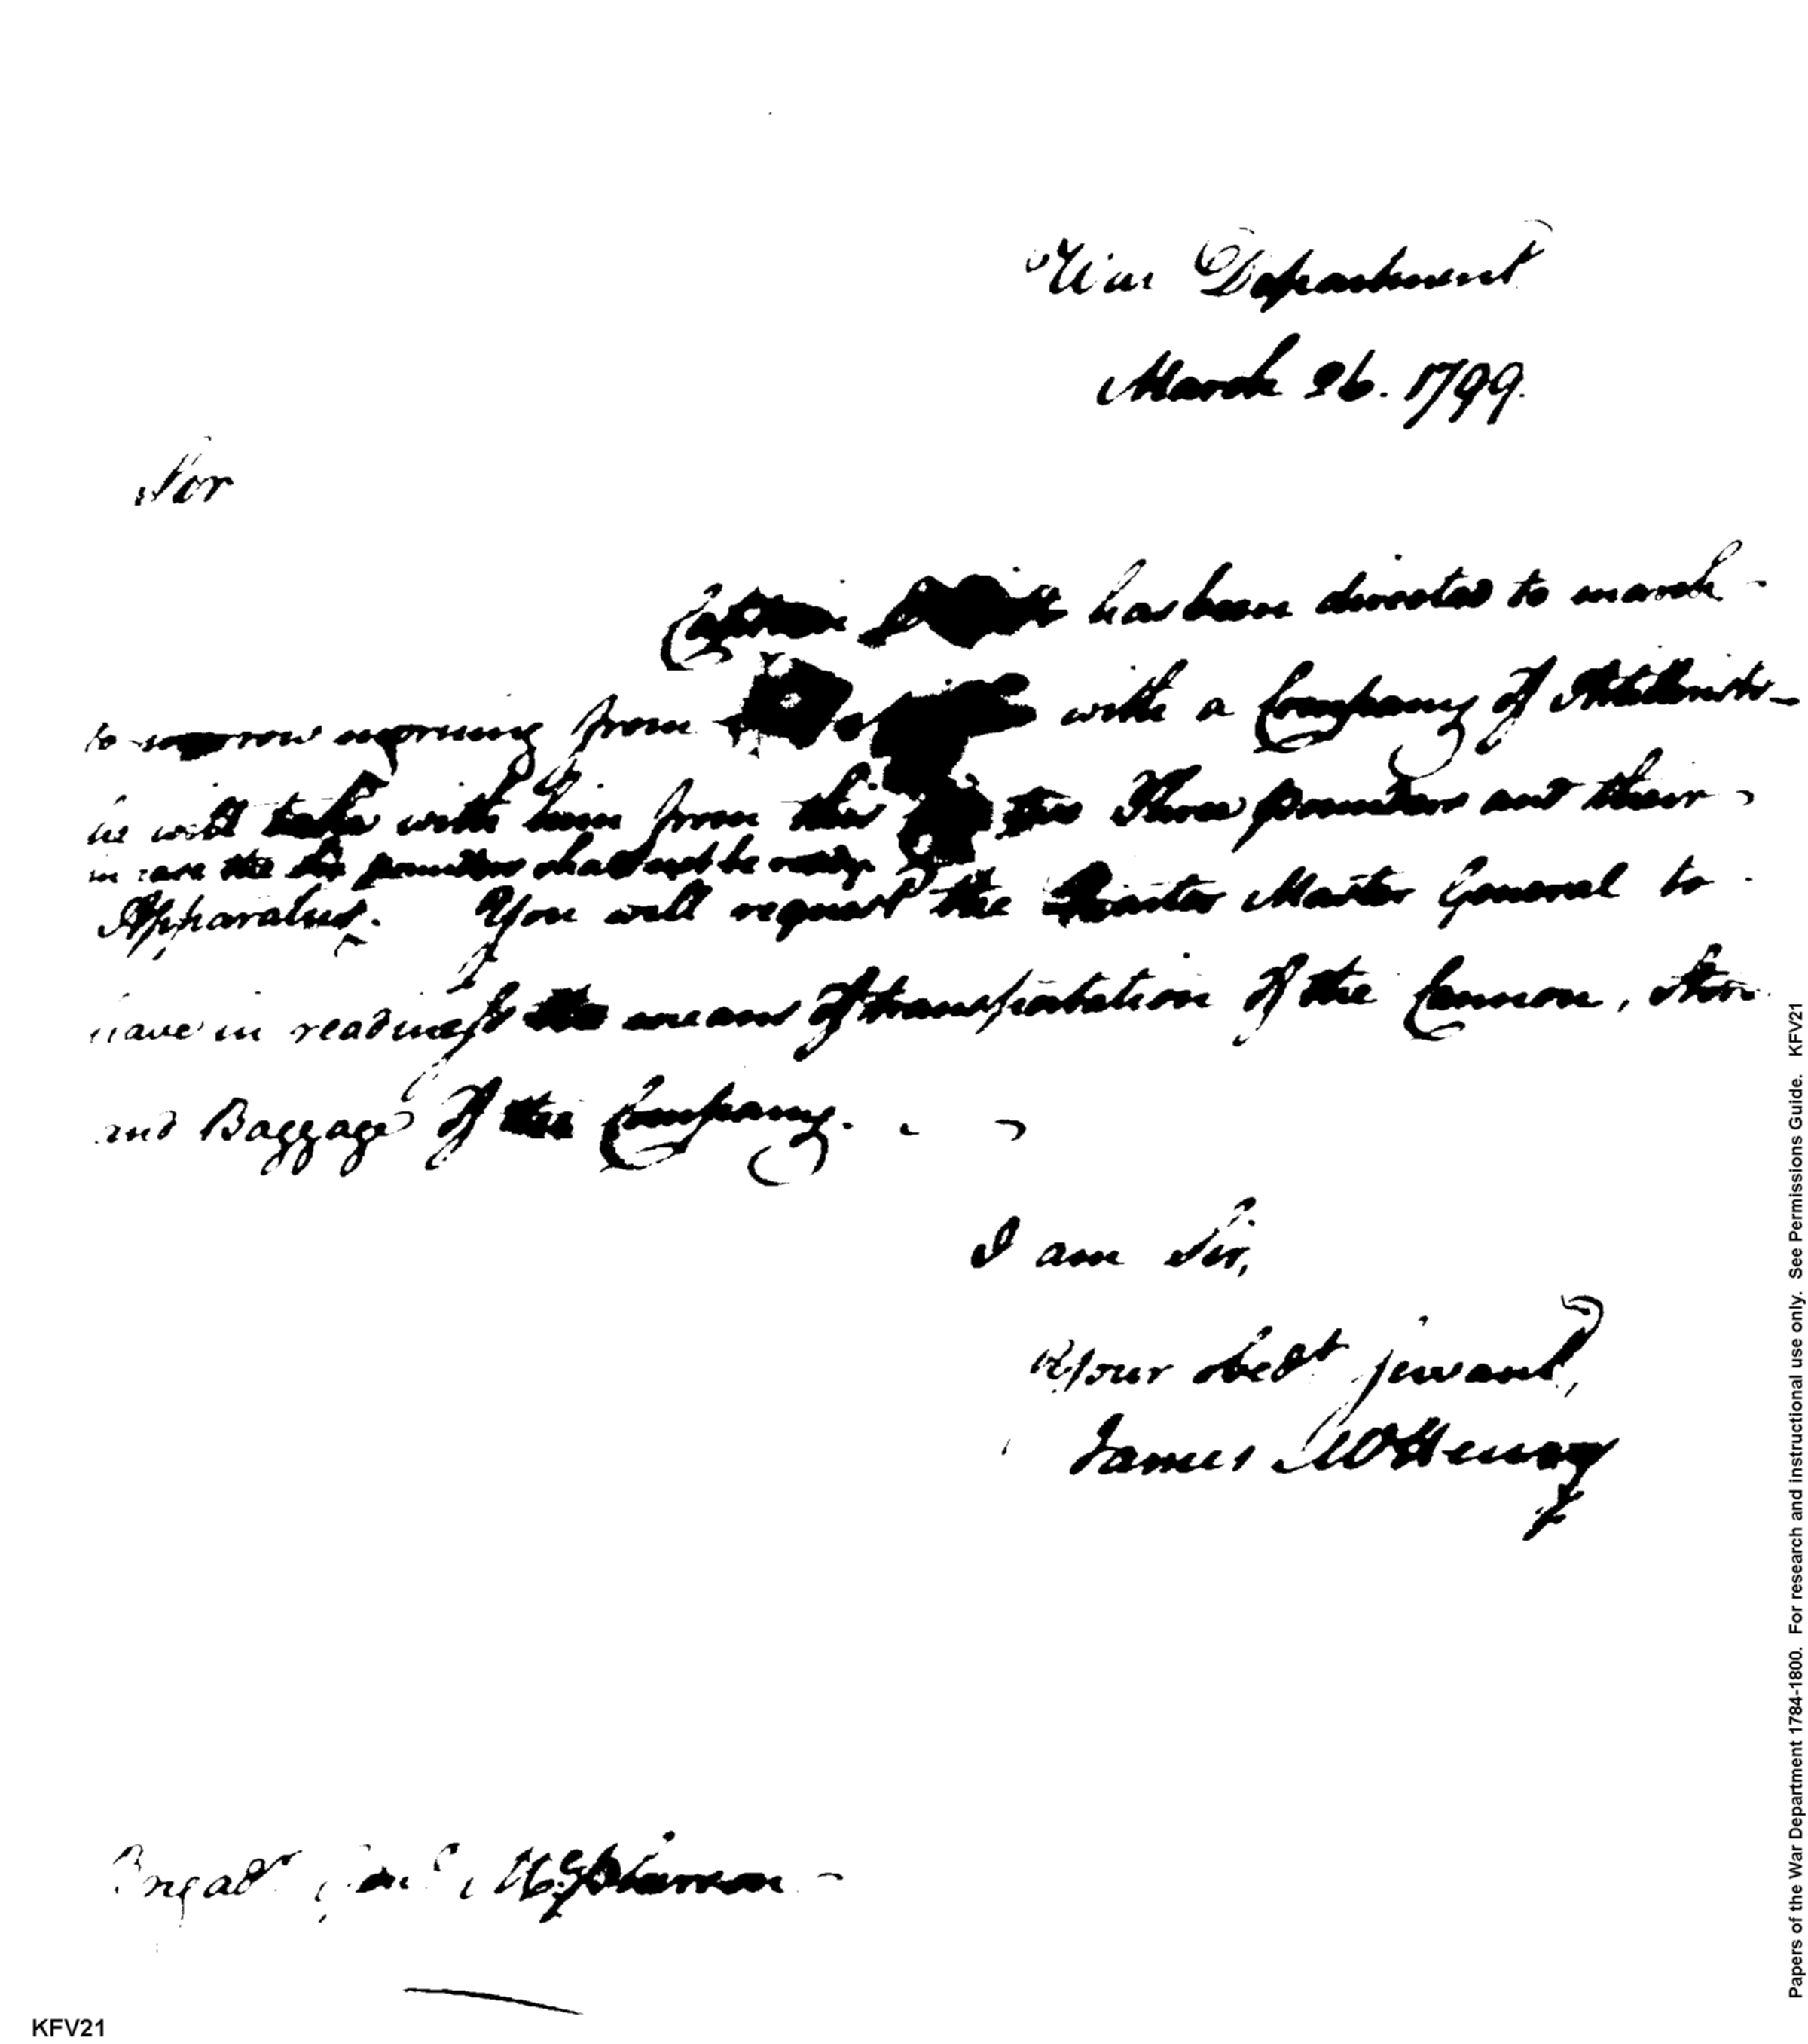 War Department
March 26. 1799.
Sir
Captain has been directed to march
to morrow morning from with a Company of Artillerists
he will take with him from this two Three pounders and their
in case the six pounders should not be ready
Apparatus. You will request the Quarter Master General to
have in readiness the means of transportation of the Cannon, Stores
and Baggage of the Company.
I am Sir,
Your obedt servant,
James McHenry
Brigadr Genl McPherson
KFV21
Papers of the War Department 1784-1800. For research and instructional use only. See Permissions Guide. KFV21